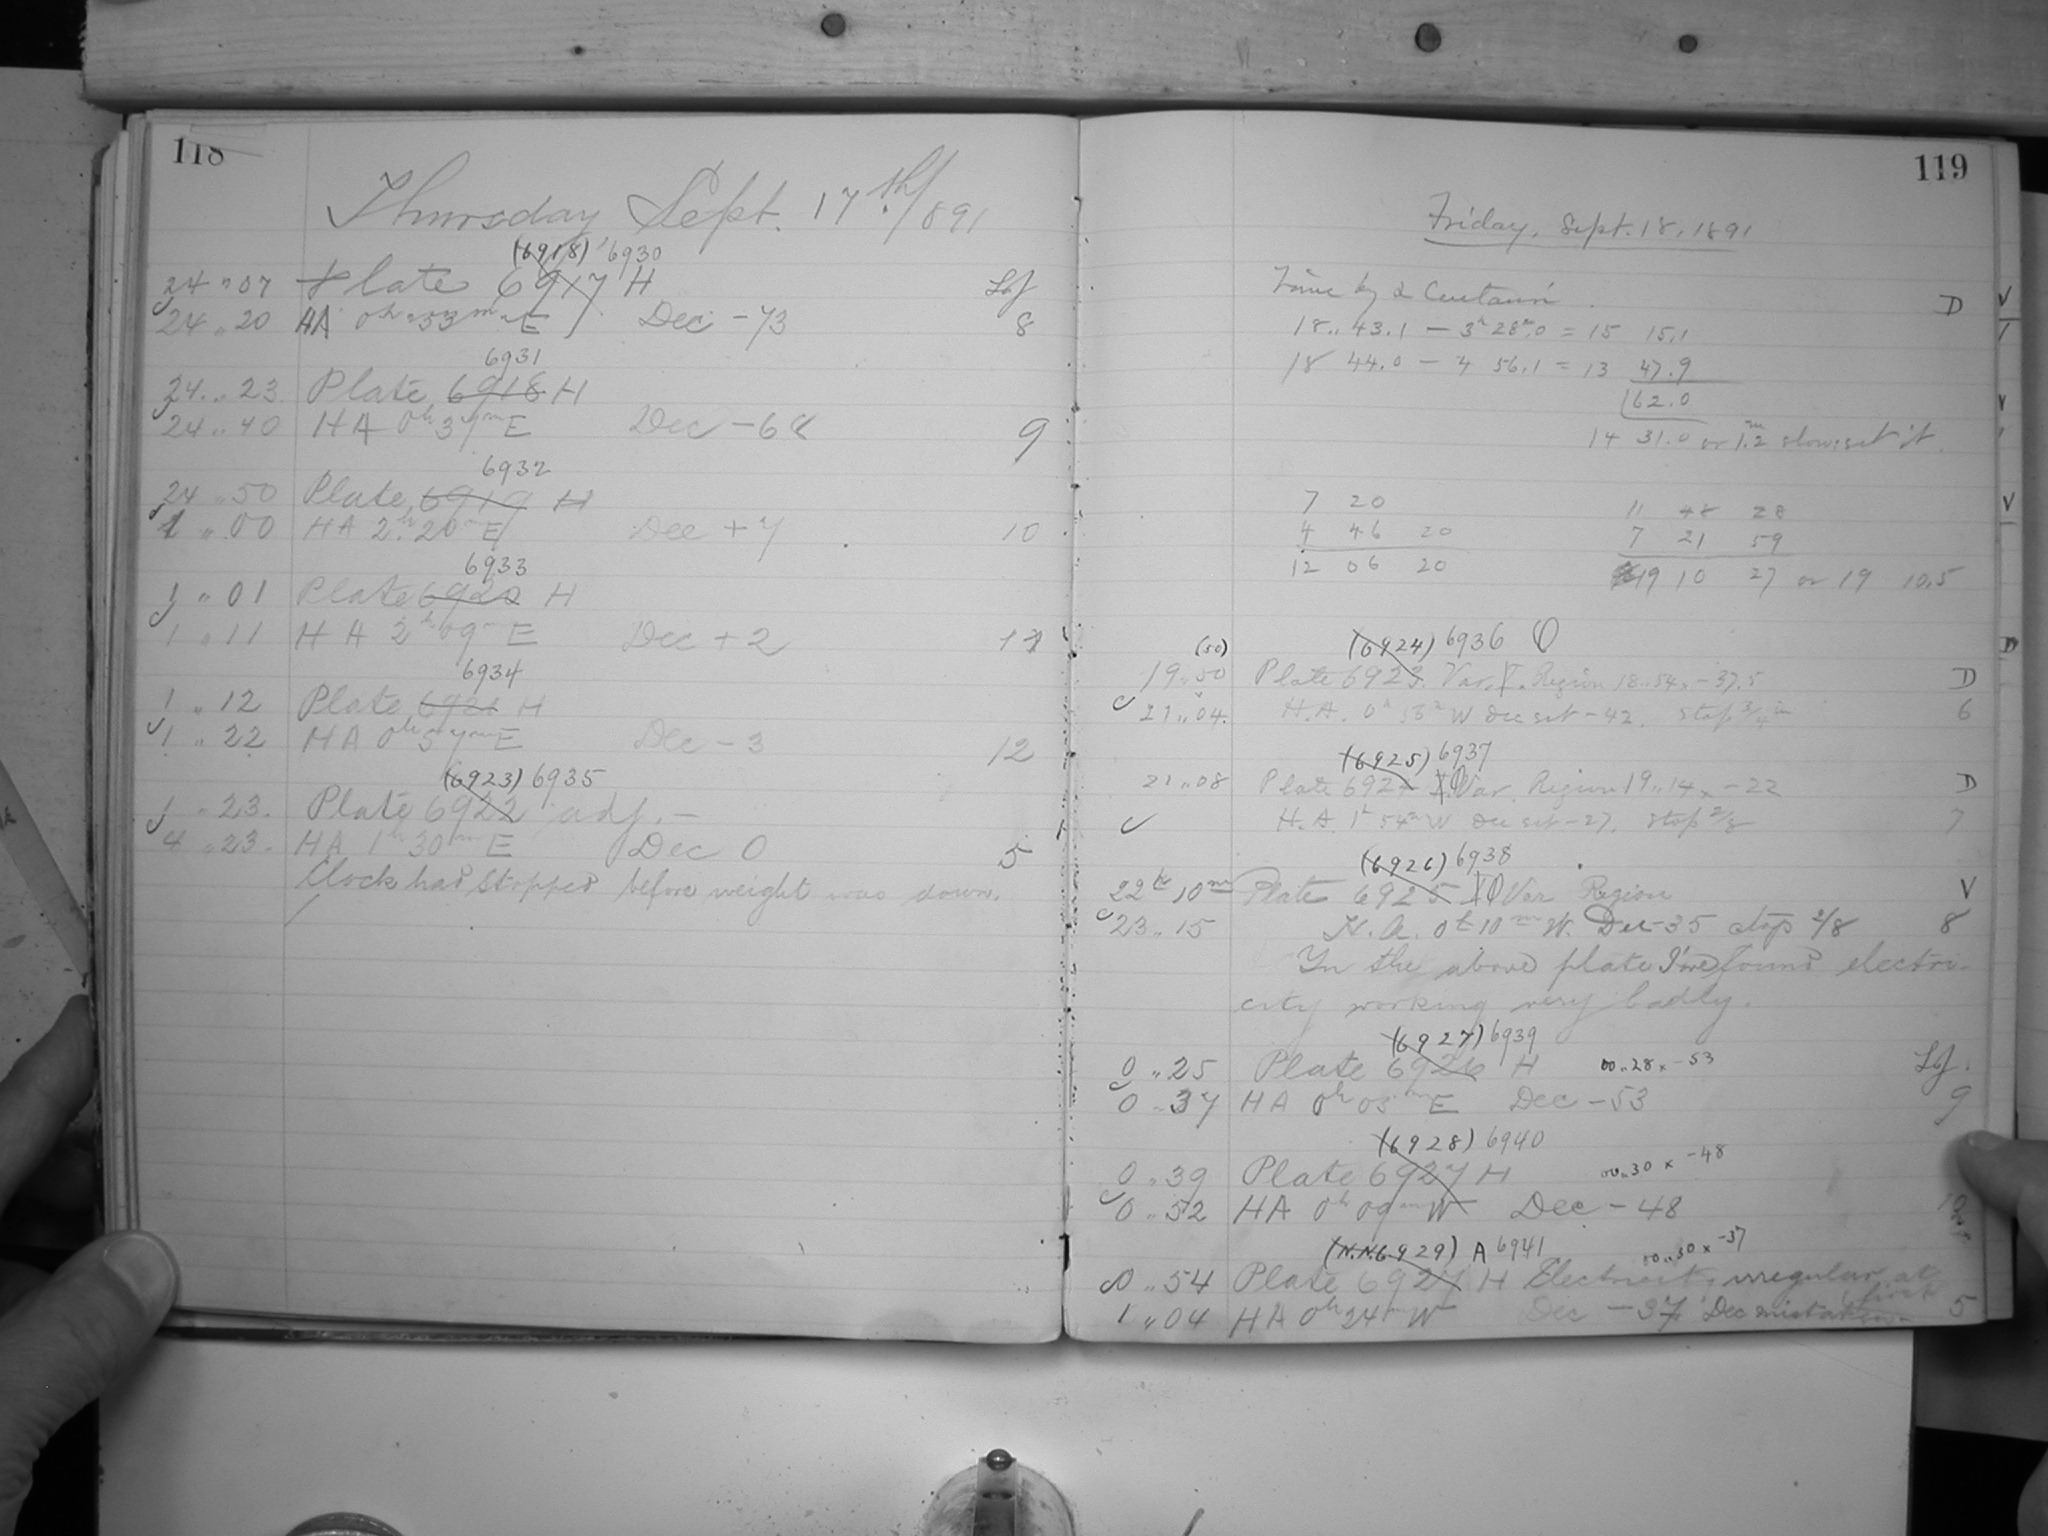 118
Thursday Sept. 17th/891
(6918) 6930
24 " 07 Plate 6917 H
24 " 20 HA 0h 53m E Dec -73 8
6931
24 " 23 Plate 6918 H
24 " 40 HA 0h 37m E Dec -68 9
6932
24 " 50 Plate 6919 H
1 " 00 HA 2h 20m E Dec +7 10
6933
1 " 01 Plate 6920 H
1 " 11 HA 2h 09m E Dec +2 11
6934
1 " 12 Plate 6921 H
1 " 22 HA 0h 57m E Dec -3 12
(6923) 6935
1 " 23. Plate 6922 adj. -
4 " 23. HA 1h 30m E Dec 0 5
Clock had stopped before weight was down.
119
Friday, Sept. 18, 1891
Time by α Centauri D
18 " 43.1 - 3h 28m.0 = 15 15.1
18 44.0 - 4 56.1 = 13 47.9
62.0
14 31.0 or 1.2m slow; set it.
7 20
4 46 20
12 06 20
11 48 28
7 21 59
19 10 27 or 19 10.5
(50) (6924) 6936
19 " 50 Plate 6923. Var. Region 18 " 54 x -37.5 D
21 " 04. H.A. 0h 58m W Dec set -42. stop 3/4 in 6
(6925) 6937
21 " 08 Plate 6924 Var. Region 19 " 14 x -22 D
H.A. 1h 54m W Dec set -27. stop 2/8 7
(6926) 6938
22h 10m Plate 6925 Var Region V
23 " 15 H.A. 0h 10m W. Dec -35 stop 2/8 8
In the above plate I've found electri-
city working very badly.
(6927) 6939
0 " 25 Plate 6926 H 00 " 28 x -53
0 " 37 HA 0h 03m E Dec -53 9
(6928) 6940
0 " 39 Plate 6927 H 00 " 30 x -48
0 " 52 HA 0h 09m W Dec -48 10
(N.N. 6929) A 6941 00 " 30 x -37
0 " 54 Plate 6927 H Electricity irregular at first
1 " 04 HA 0h 24m W Dec -37 Dec mistaken 5